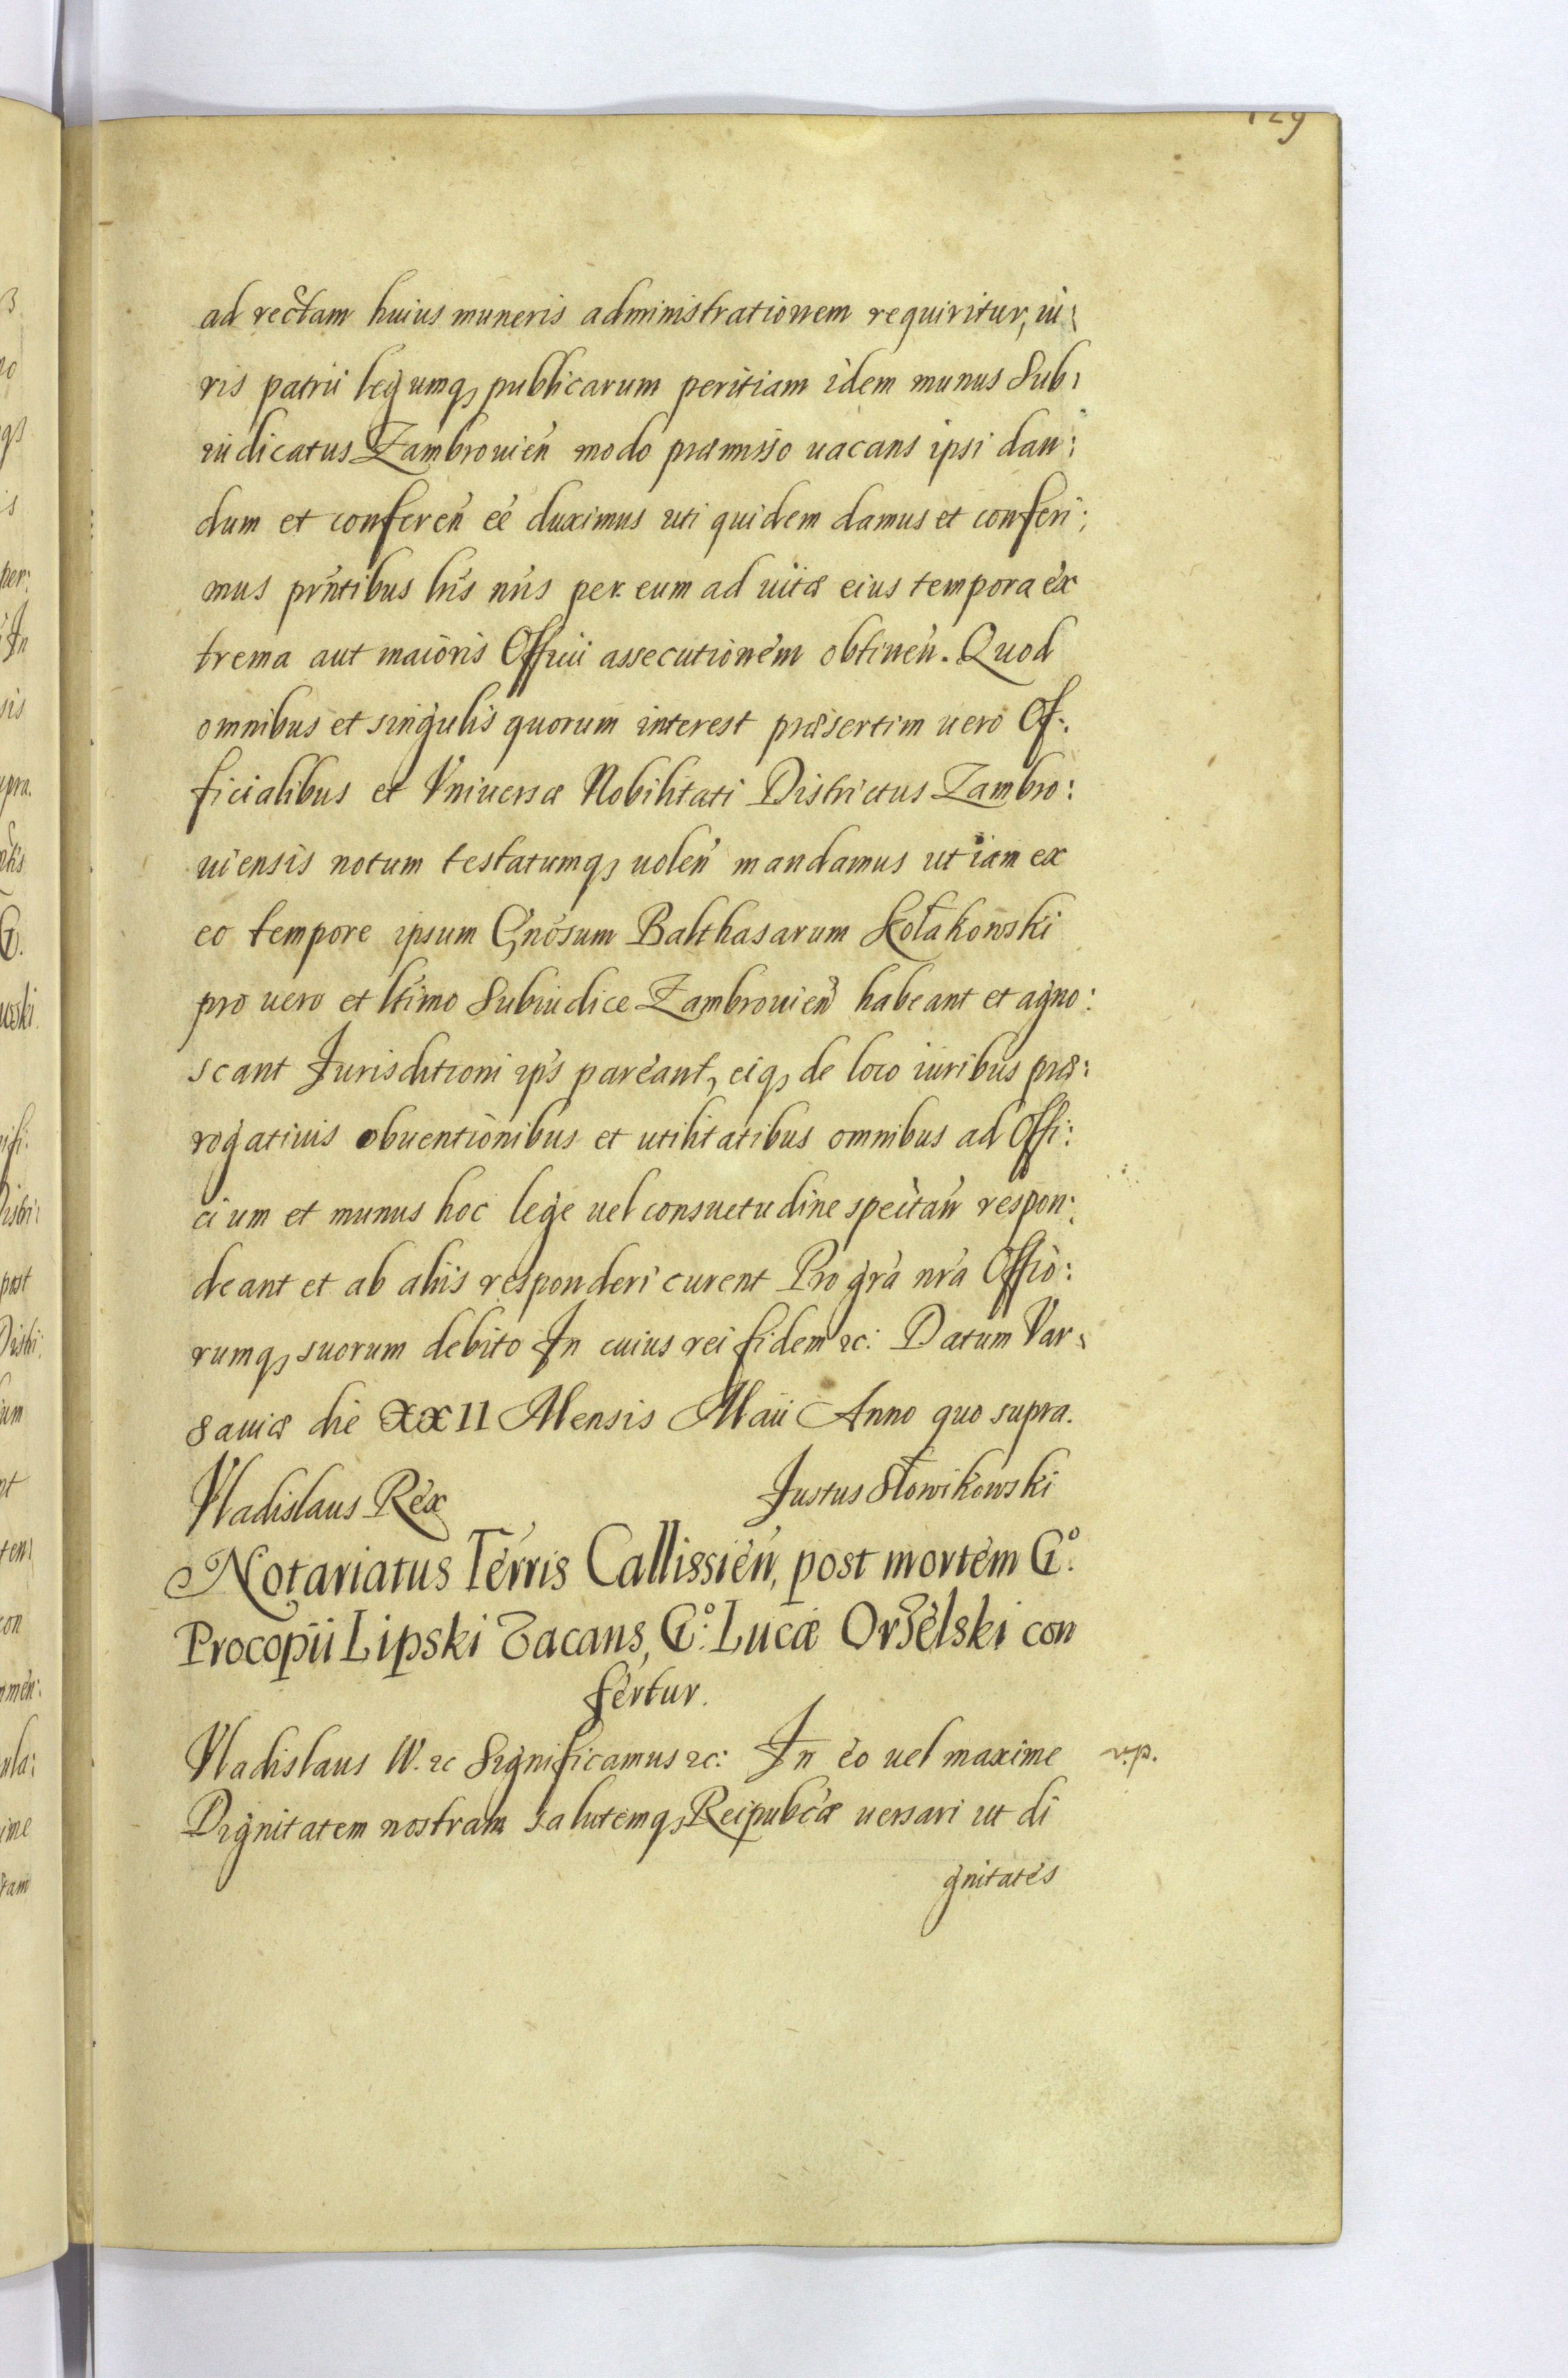 129
ad rectam huius muneris administrationem requiritur, iu:
ris patrii legumq, publicarum peritiam idem munus Sub:
iudicatus Zambrouień modo præmisso uacans ipsi dan:
dum et confereń eé duximus uti quidem damus et conferi:
mus prńtibus hís nŕis per eum ad uitæ eius tempora ex
trema aut maioris Officii assecutionem obtineń. Quod
omnibus et singulis quorum interest præsertim uero Of:
ficialibus et Vniuersæ Nobilitati Districtus Zambro:
uiensis notum testatumq, uoleń mandamus ut iam ex
eo tempore ipsum Gnósum Balthasarum Kołakowski
pro uero et ltímo Subiudice Zambrouień habeant et agno:
scant Jurisditioni ips pareant, eiq, de loco iuribus præ:
rogatiuis obuentionibus et utilitatibus omnibus ad Offi:
cium et munus hoc lege uel consuetudine spectań respon:
deant et ab aliis responderi curent Pro gŕa nŕa Offio:
rumq, suorum debito In cuius rei fidem &c: Datum Var:
sauiæ die XXII Mensis Maii Anno quo supra.
Vladislaus Rex Justus Słowikowski
Notariatus Terris Callissień, post mortem G.º
Procopii Lipski Vacans, G.º Lucæ Orzelski con
fertur.
Vladislaus IV. &c Significamus &c: In eo uel maxime
v.p.
Dignitatem nostram salutemq, Reipubcæ uersari ut di
gnitates